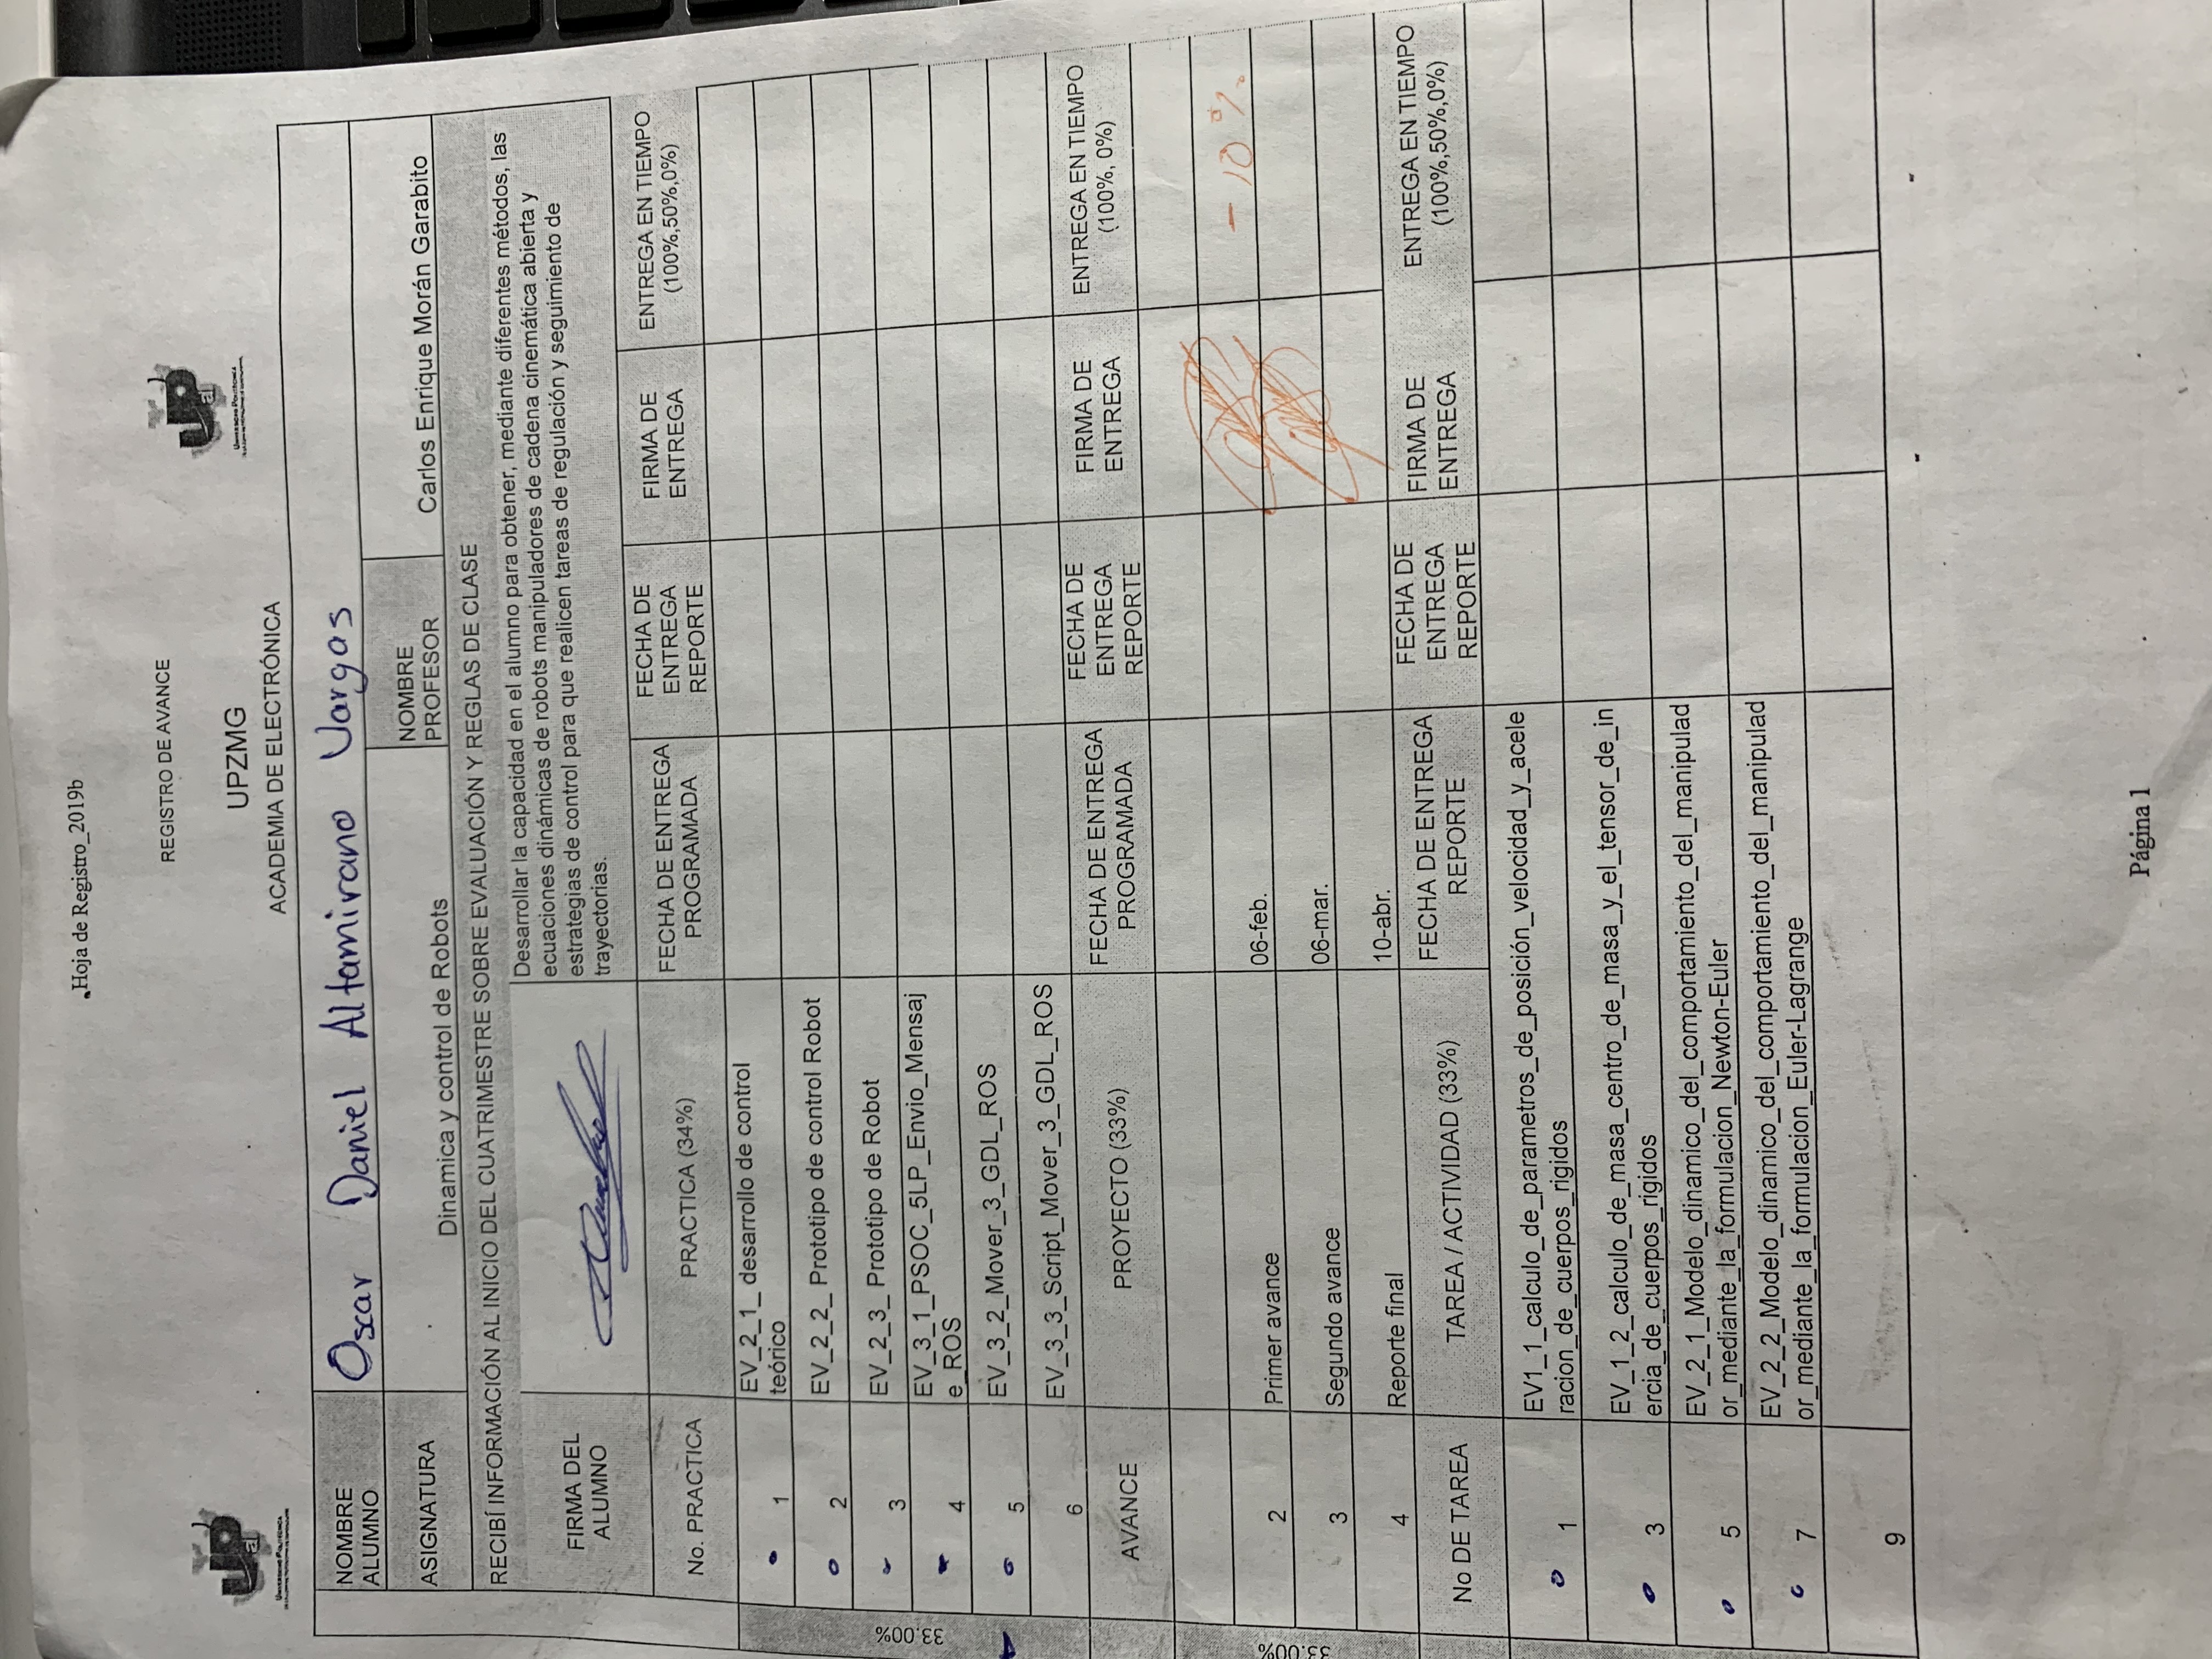 Hoja de Registro_2019b
REGISTRO DE AVANCE
UPZMG
ACADEMIA DE ELECTRÓNICA
NOMBRE
ALUMNO
Oscar Daniel Altamirano Vargas
ASIGNATURA
Dinamica y control de Robots
NOMBRE
PROFESOR
Carlos Enrique Morán Garabito
RECIBÍ INFORMACIÓN AL INICIO DEL CUATRIMESTRE SOBRE EVALUACIÓN Y REGLAS DE CLASE
FIRMA DEL
ALUMNO
Desarrollar la capacidad en el alumno para obtener, mediante diferentes métodos, las
ecuaciones dinámicas de robots manipuladores de cadena cinemática abierta y
estrategias de control para que realicen tareas de regulación y seguimiento de
trayectorias.
No. PRACTICA
PRACTICA (34%)
FECHA DE ENTREGA
PROGRAMADA
FECHA DE
ENTREGA
REPORTE
FIRMA DE
ENTREGA
ENTREGA EN TIEMPO
(100%,50%,0%)
33.00%
1
EV_2_1_ desarrollo de control
teórico
2
EV_2_2_ Prototipo de control Robot
3
EV_2_3_ Prototipo de Robot
4
EV_3_1_PSOC_5LP_Envio_Mensaj
e_ROS
5
EV_3_2_Mover_3_GDL_ROS
6
EV_3_3_Script_Mover_3_GDL_ROS
AVANCE
PROYECTO (33%)
FECHA DE ENTREGA
PROGRAMADA
FECHA DE
ENTREGA
REPORTE
FIRMA DE
ENTREGA
ENTREGA EN TIEMPO
(100%, 0%)
33.00%
2
Primer avance
06-feb.
- 10%
3
Segundo avance
06-mar.
4
Reporte final
10-abr.
No DE TAREA
TAREA / ACTIVIDAD (33%)
FECHA DE ENTREGA
REPORTE
FECHA DE
ENTREGA
REPORTE
FIRMA DE
ENTREGA
ENTREGA EN TIEMPO
(100%,50%,0%)
1
EV1_1_calculo_de_parametros_de_posición_velocidad_y_acele
racion_de_cuerpos_rigidos
3
EV_1_2_calculo_de_masa_centro_de_masa_y_el_tensor_de_in
ercia_de_cuerpos_rigidos
5
EV_2_1_Modelo_dinamico_del_comportamiento_del_manipulad
or_mediante_la_formulacion_Newton-Euler
7
EV_2_2_Modelo_dinamico_del_comportamiento_del_manipulad
or_mediante_la_formulacion_Euler-Lagrange
9
Página 1